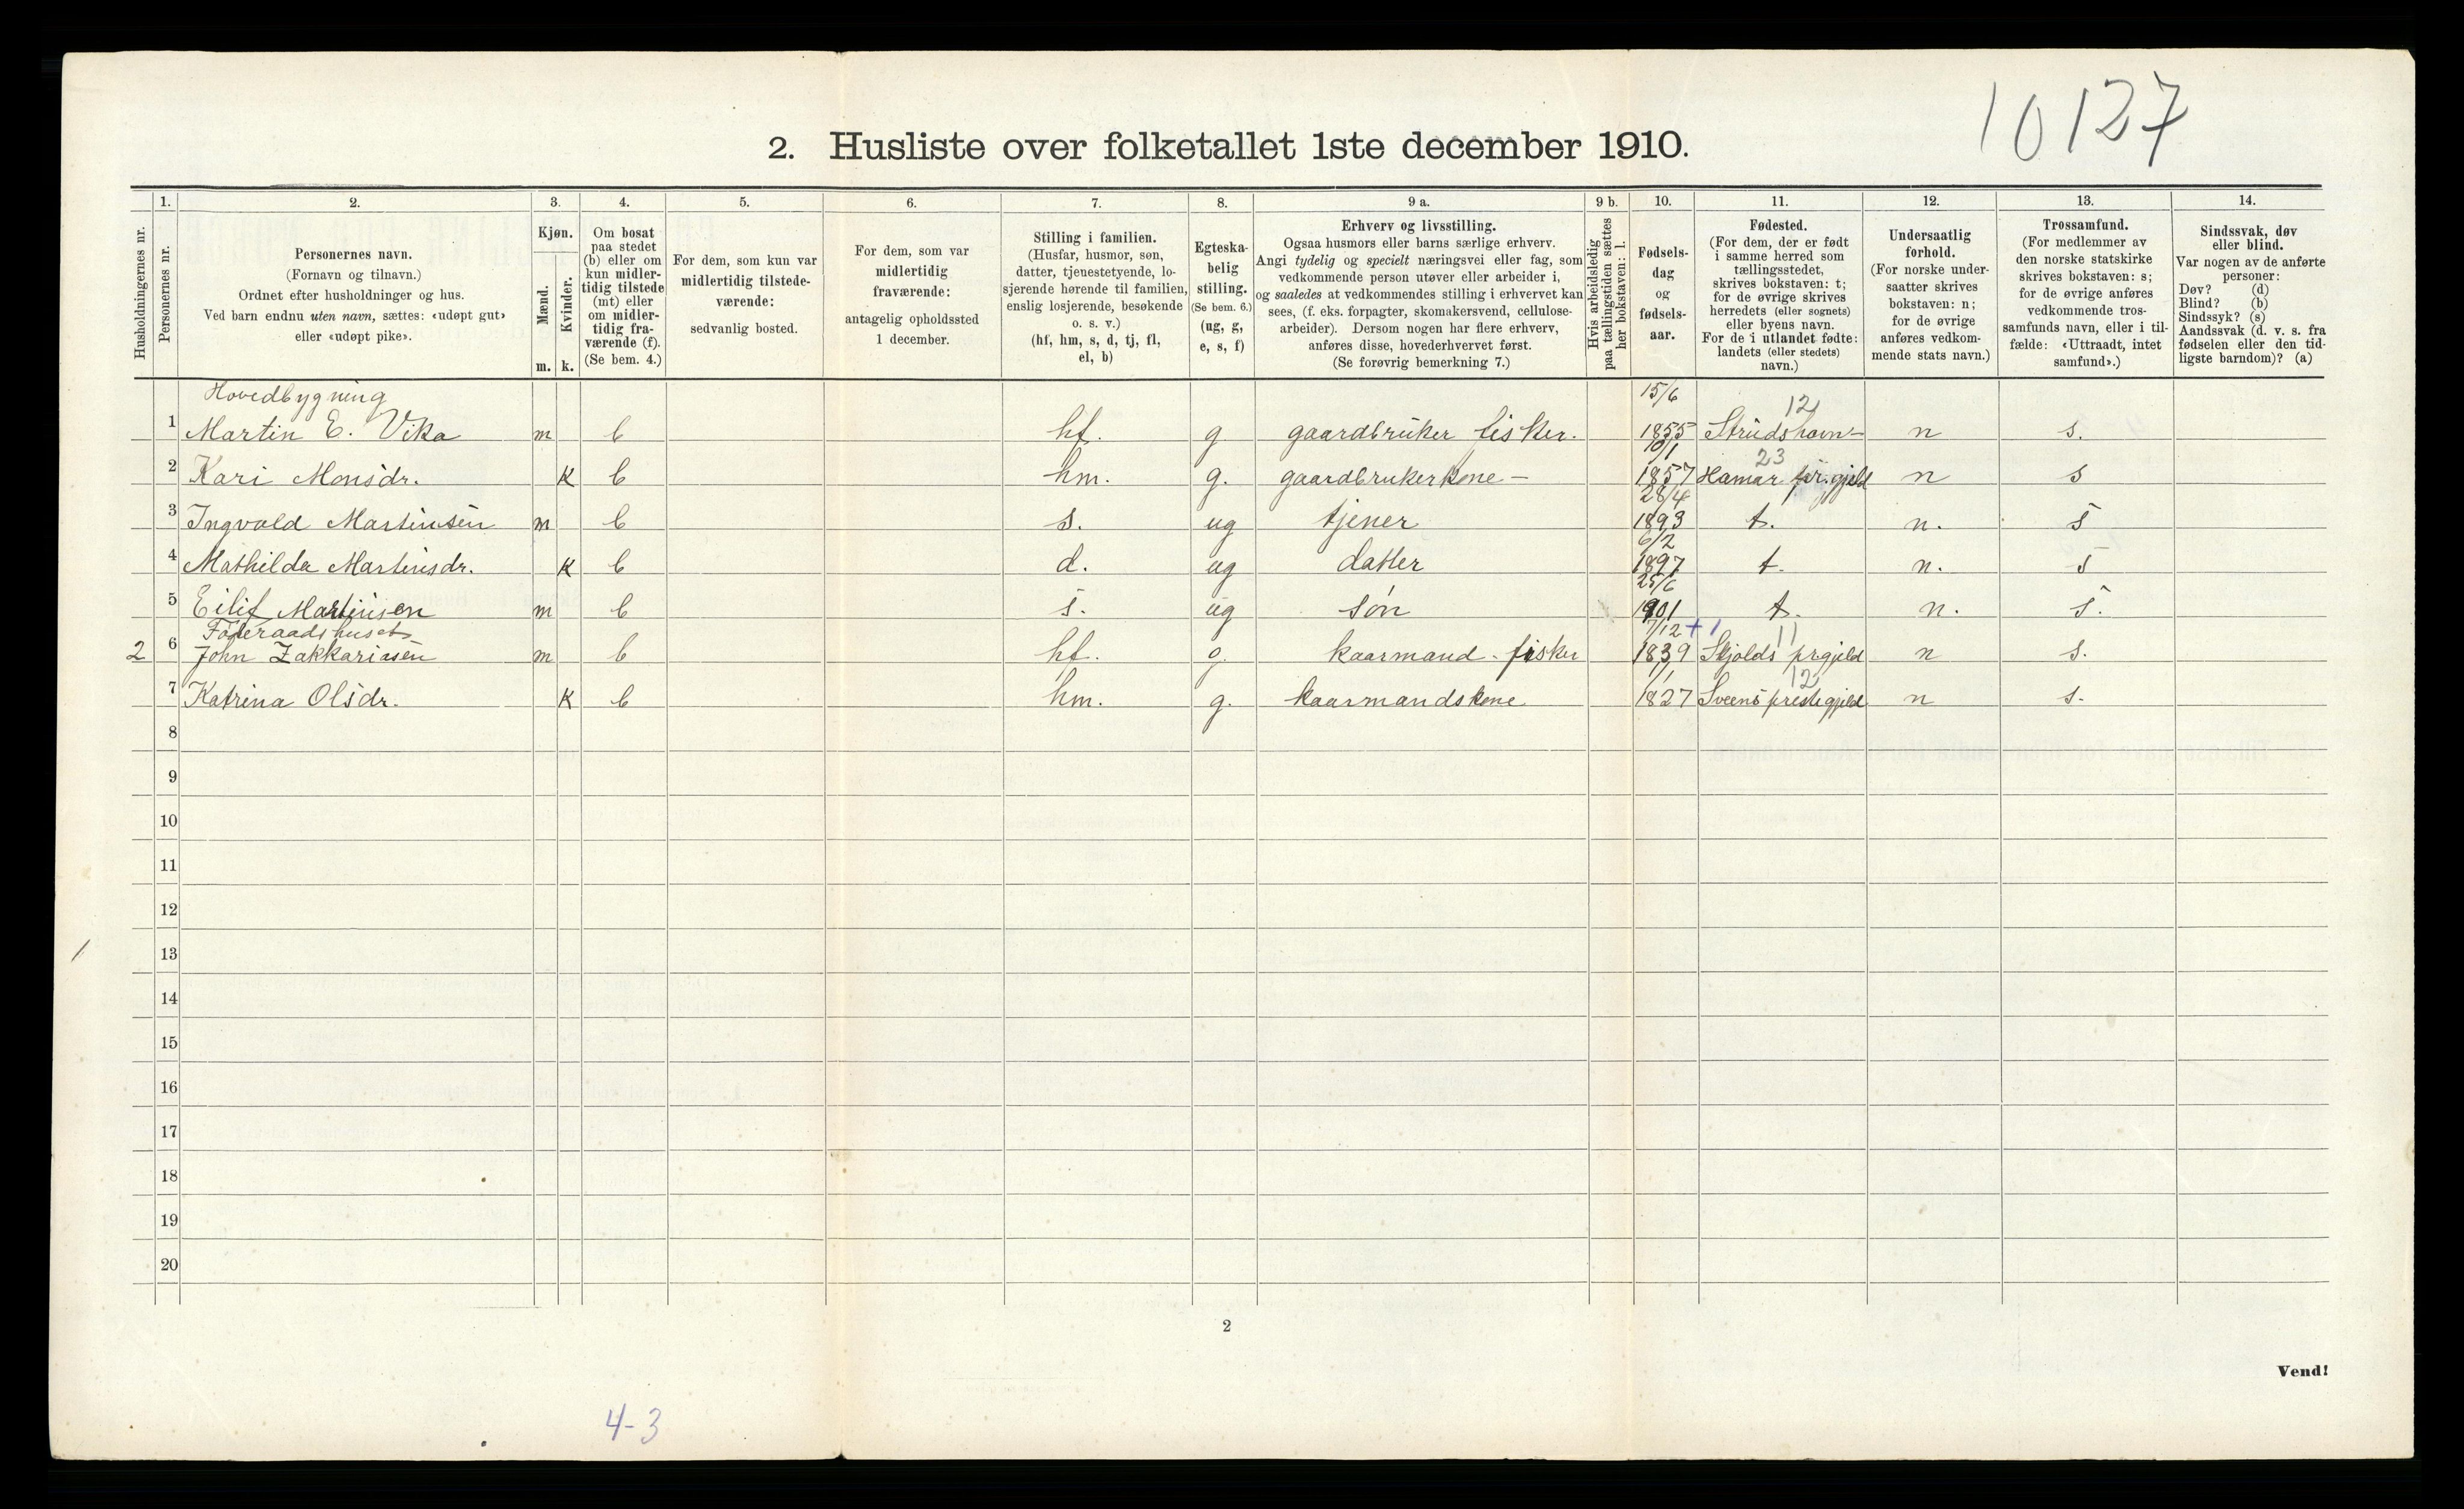 10127
2. Husliste over folketallet 1ste december 1910.
Husholdningernes nr.
1. Personernes nr.
2. Personernes navn.
(Fornavn og tilnavn.)
Ordnet efter husholdninger og hus.
Ved barn endnu uten navn, sættes: «udøpt gut»
eller «udøpt pike».
3. Kjøn.
Mænd. m.
Kvinder. k.
4. Om bosat
paa stedet
(b) eller om
kun midler-
tidig tilstede
(mt) eller
om midler-
tidig fra-
værende (f).
(Se bem. 4.)
5. For dem, som kun var
midlertidig tilstede-
værende:
sedvanlig bosted.
6. For dem, som var
midlertidig
fraværende:
antagelig opholdssted
1 december.
7. Stilling i familien.
(Husfar, husmor, søn,
datter, tjenestetyende, lo-
sjerende hørende til familien,
enslig losjerende, besøkende
o. s. v.)
(hf, hm, s, d, tj, fl,
el, b)
8. Egteska-
belig
stilling.
(Se bem. 6.)
(ug, g,
e, s, f)
9 a. Erhverv og livsstilling.
Ogsaa husmors eller barns særlige erhverv.
Angi tydelig og specielt næringsvei eller fag, som
vedkommende person utøver eller arbeider i,
og saaledes at vedkommendes stilling i erhvervet kan
sees, (f. eks. forpagter, skomakersvend, cellulose-
arbeider). Dersom nogen har flere erhverv,
anføres disse, hovederhvervet først.
(Se forøvrig bemerkning 7.)
9 b. Hvis arbeidsledig
paa tællingstiden sættes
her bokstaven: l.
10. Fødsels-
dag
og
fødsels-
aar.
11. Fødested.
(For dem, der er født
i samme herred som
tællingsstedet,
skrives bokstaven: t;
for de øvrige skrives
herredets (eller sognets)
eller byens navn.
For de i utlandet fødte:
landets (eller stedets)
navn.)
12. Undersaatlig
forhold.
(For norske under-
saatter skrives
bokstaven: n;
for de øvrige
anføres vedkom-
mende stats navn.)
13. Trossamfund.
(For medlemmer av
den norske statskirke
skrives bokstaven: s;
for de øvrige anføres
vedkommende tros-
samfunds navn, eller i til-
fælde: «Uttraadt, intet
samfund».)
14. Sindssvak, døv
eller blind.
Var nogen av de anførte
personer:
Døv? (d)
Blind? (b)
Sindssyk? (s)
Aandssvak (d. v. s. fra
fødselen eller den tid-
ligste barndom)? (a)
Hovedbygning 15/6 12
1 Martin E. Vika m b hf. g gaardbruker fisker. 1855 n s.
10/1 23
2 Kari Monsdr. K b hm. g. gaardbrukerkone - 1857 Hamar pr.gjeld n s
28/4
3 Ingvald Martinsen m b s. ug tjener 1893 t. n. s
6/2
4 Mathilda Martinsdr. K b d. ug datter 1897 t. n. s
25/6
5 Eilif Martinsen m b s. ug søn 1901 t. n. s.
Føderaadshuset 7/12 + 1 11
2 6 John Zakkariasen m b hf. g. kaarmand - fisker 1839 Skjolds prgjeld n s.
1/1 12
7 Katrina Olsdr. K b hm. g. kaarmandskone 1827 Sveens prestegjeld n s.
8
9
10
11
12
13
14
15
16
17
18
19
20
2
Vend!
4-3